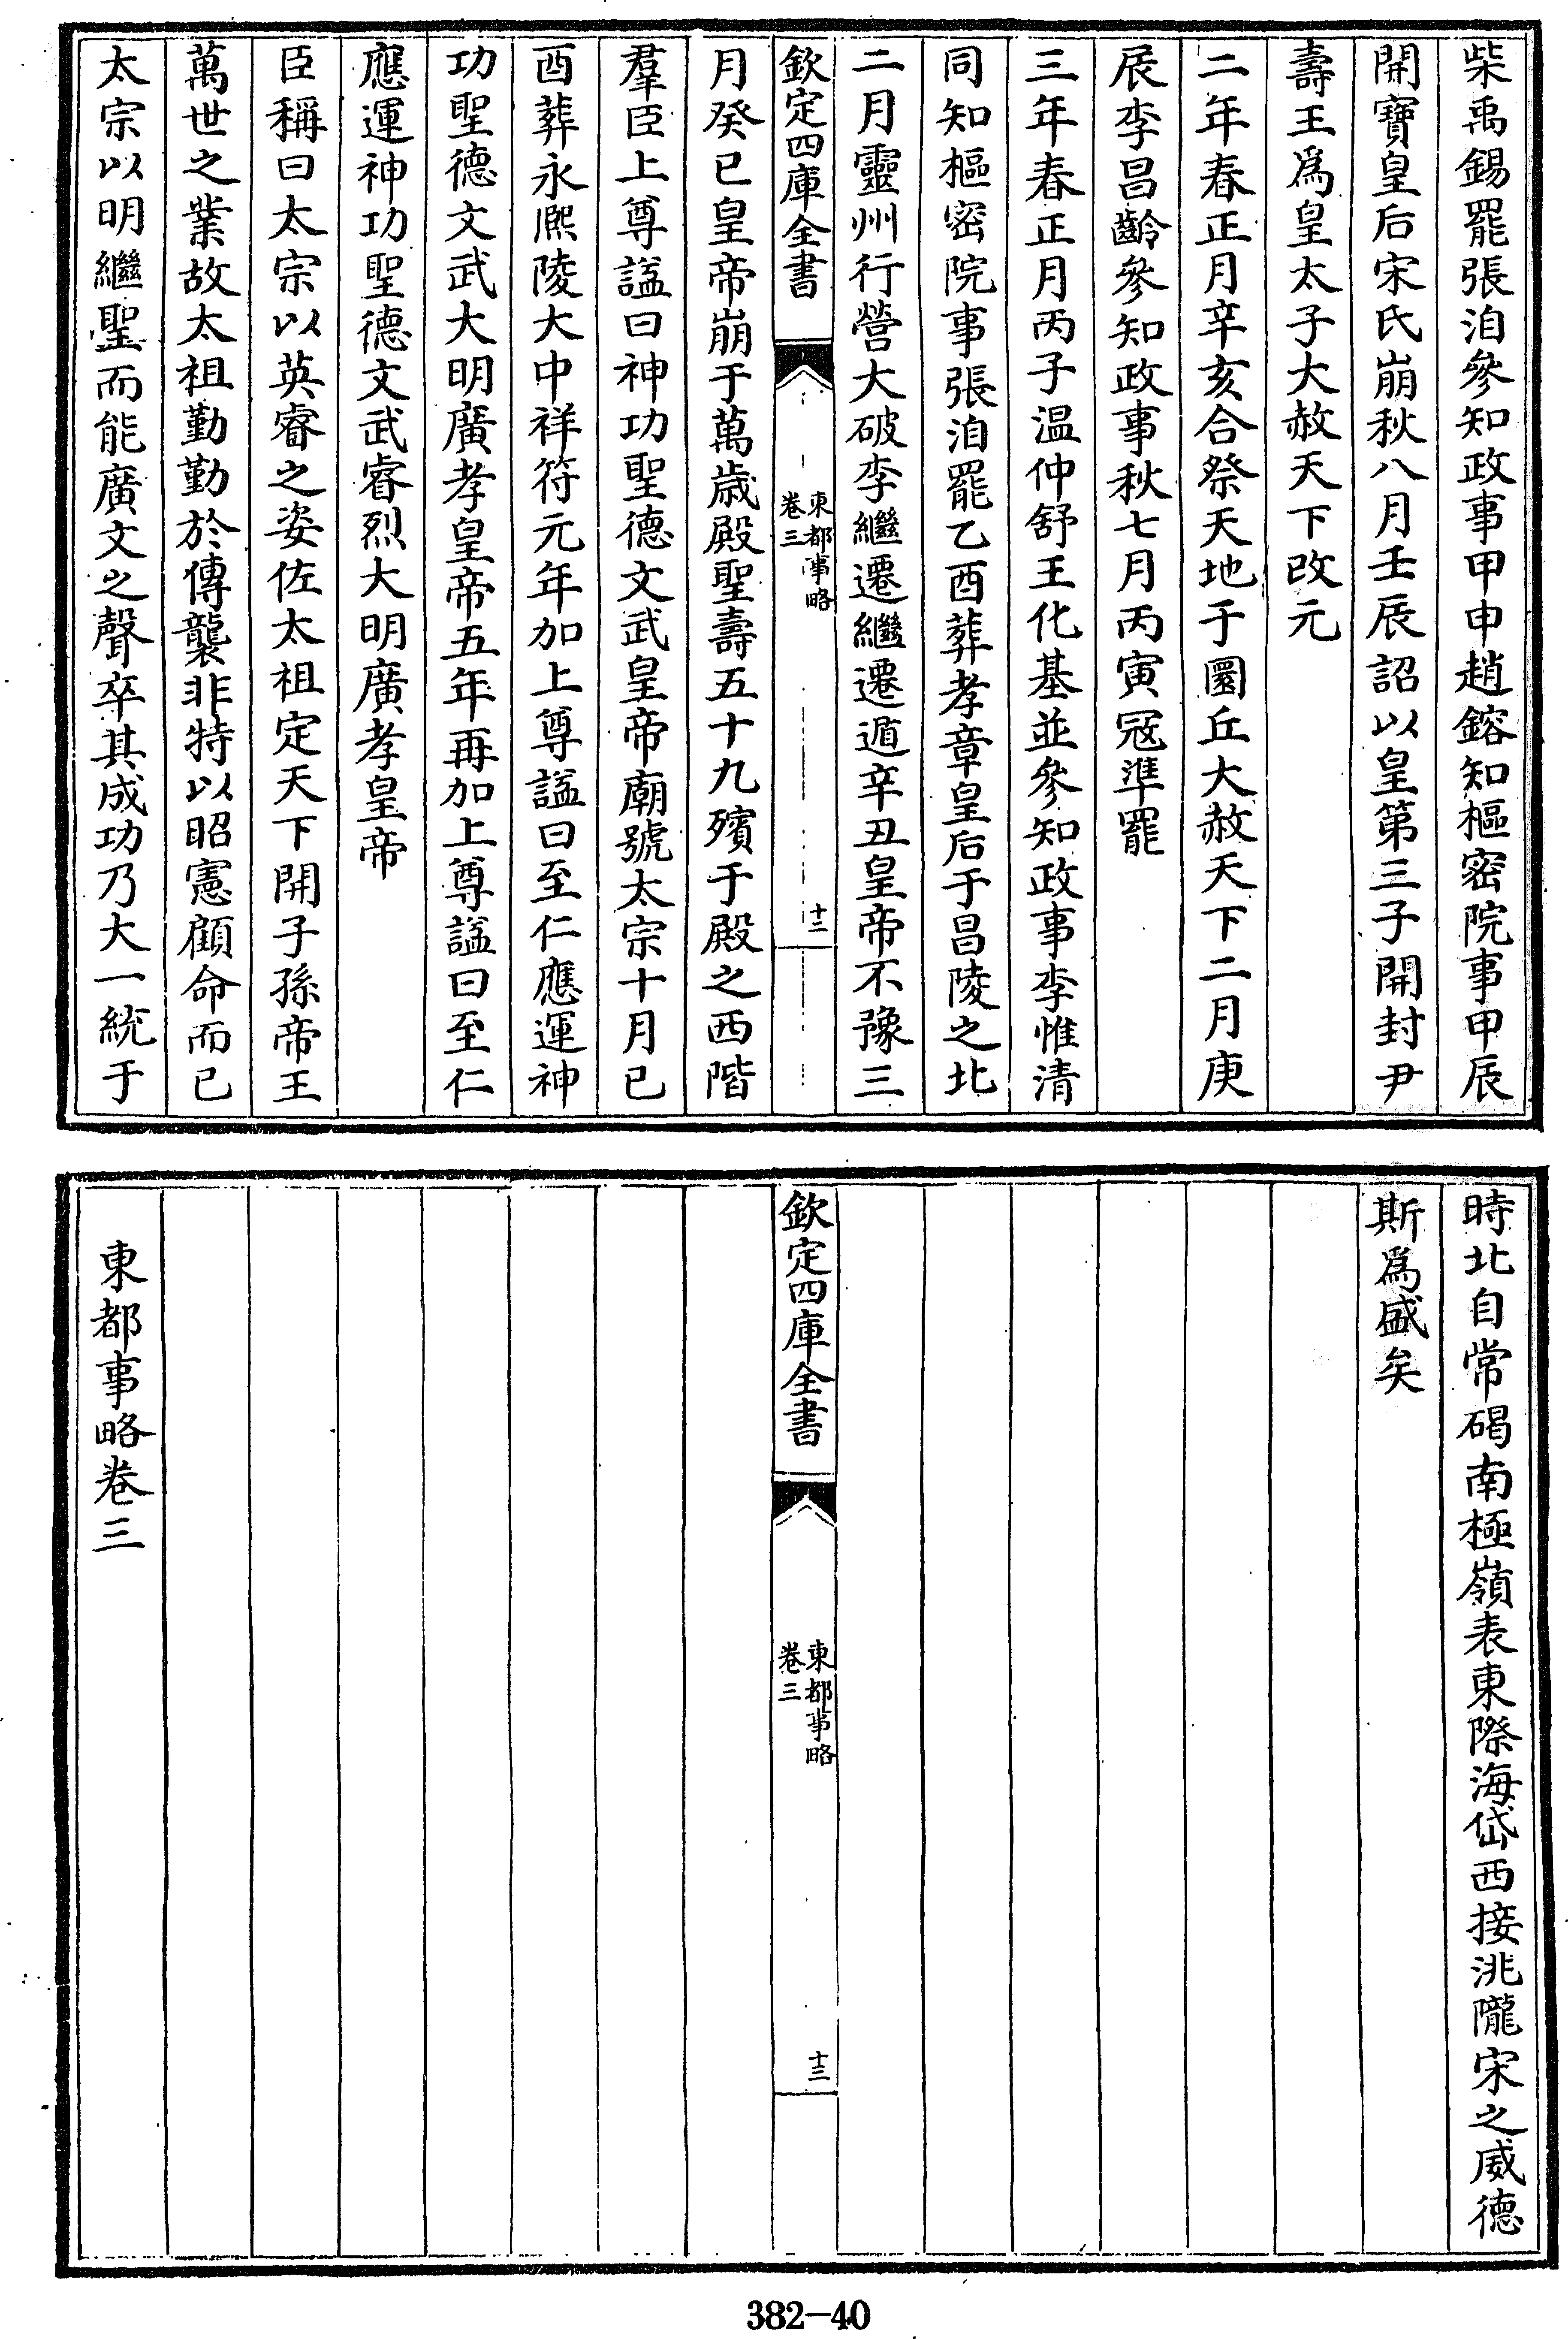 柴禹錫罷張洎參知政事甲申趙鎔知樞密院事甲辰
開寶皇后宋氏崩秋八月壬辰詔以皇第三子開封尹
壽王爲皇太子大赦天下改元
二年春正月辛亥合祭天地于圜丘大赦天下二月庚
辰李昌齡參知政事秋七月丙寅冦準罷
三年春正月丙子温仲舒王化基並參知政事李惟清
同知樞密院事張洎罷乙酉葬孝章皇后于昌陵之北
二月靈州行營大破李繼遷繼遷遁辛丑皇帝不豫三
欽定四庫全書
東都事略
卷三
十二
月癸巳皇帝崩于萬歲殿聖壽五十九殯于殿之西階
羣臣上尊諡曰神功聖德文武皇帝廟號太宗十月已
酉葬永熈陵大中祥符元年加上尊諡曰至仁應運神
功聖德文武大明廣孝皇帝五年再加上尊諡曰至仁
應運神功聖德文武睿烈大明廣孝皇帝
臣稱曰太宗以英睿之姿佐太祖定天下開子孫帝王
萬世之業故太祖勤勤於傳襲非特以昭憲顧命而已
太宗以明繼聖而能廣文之聲卒其成功乃大一統于
時北自常碣南極嶺表東際海岱西接洮隴宋之威德
斯爲盛矣
欽定四庫全書
東都事略
卷三
十三
東都事略卷三
382-40